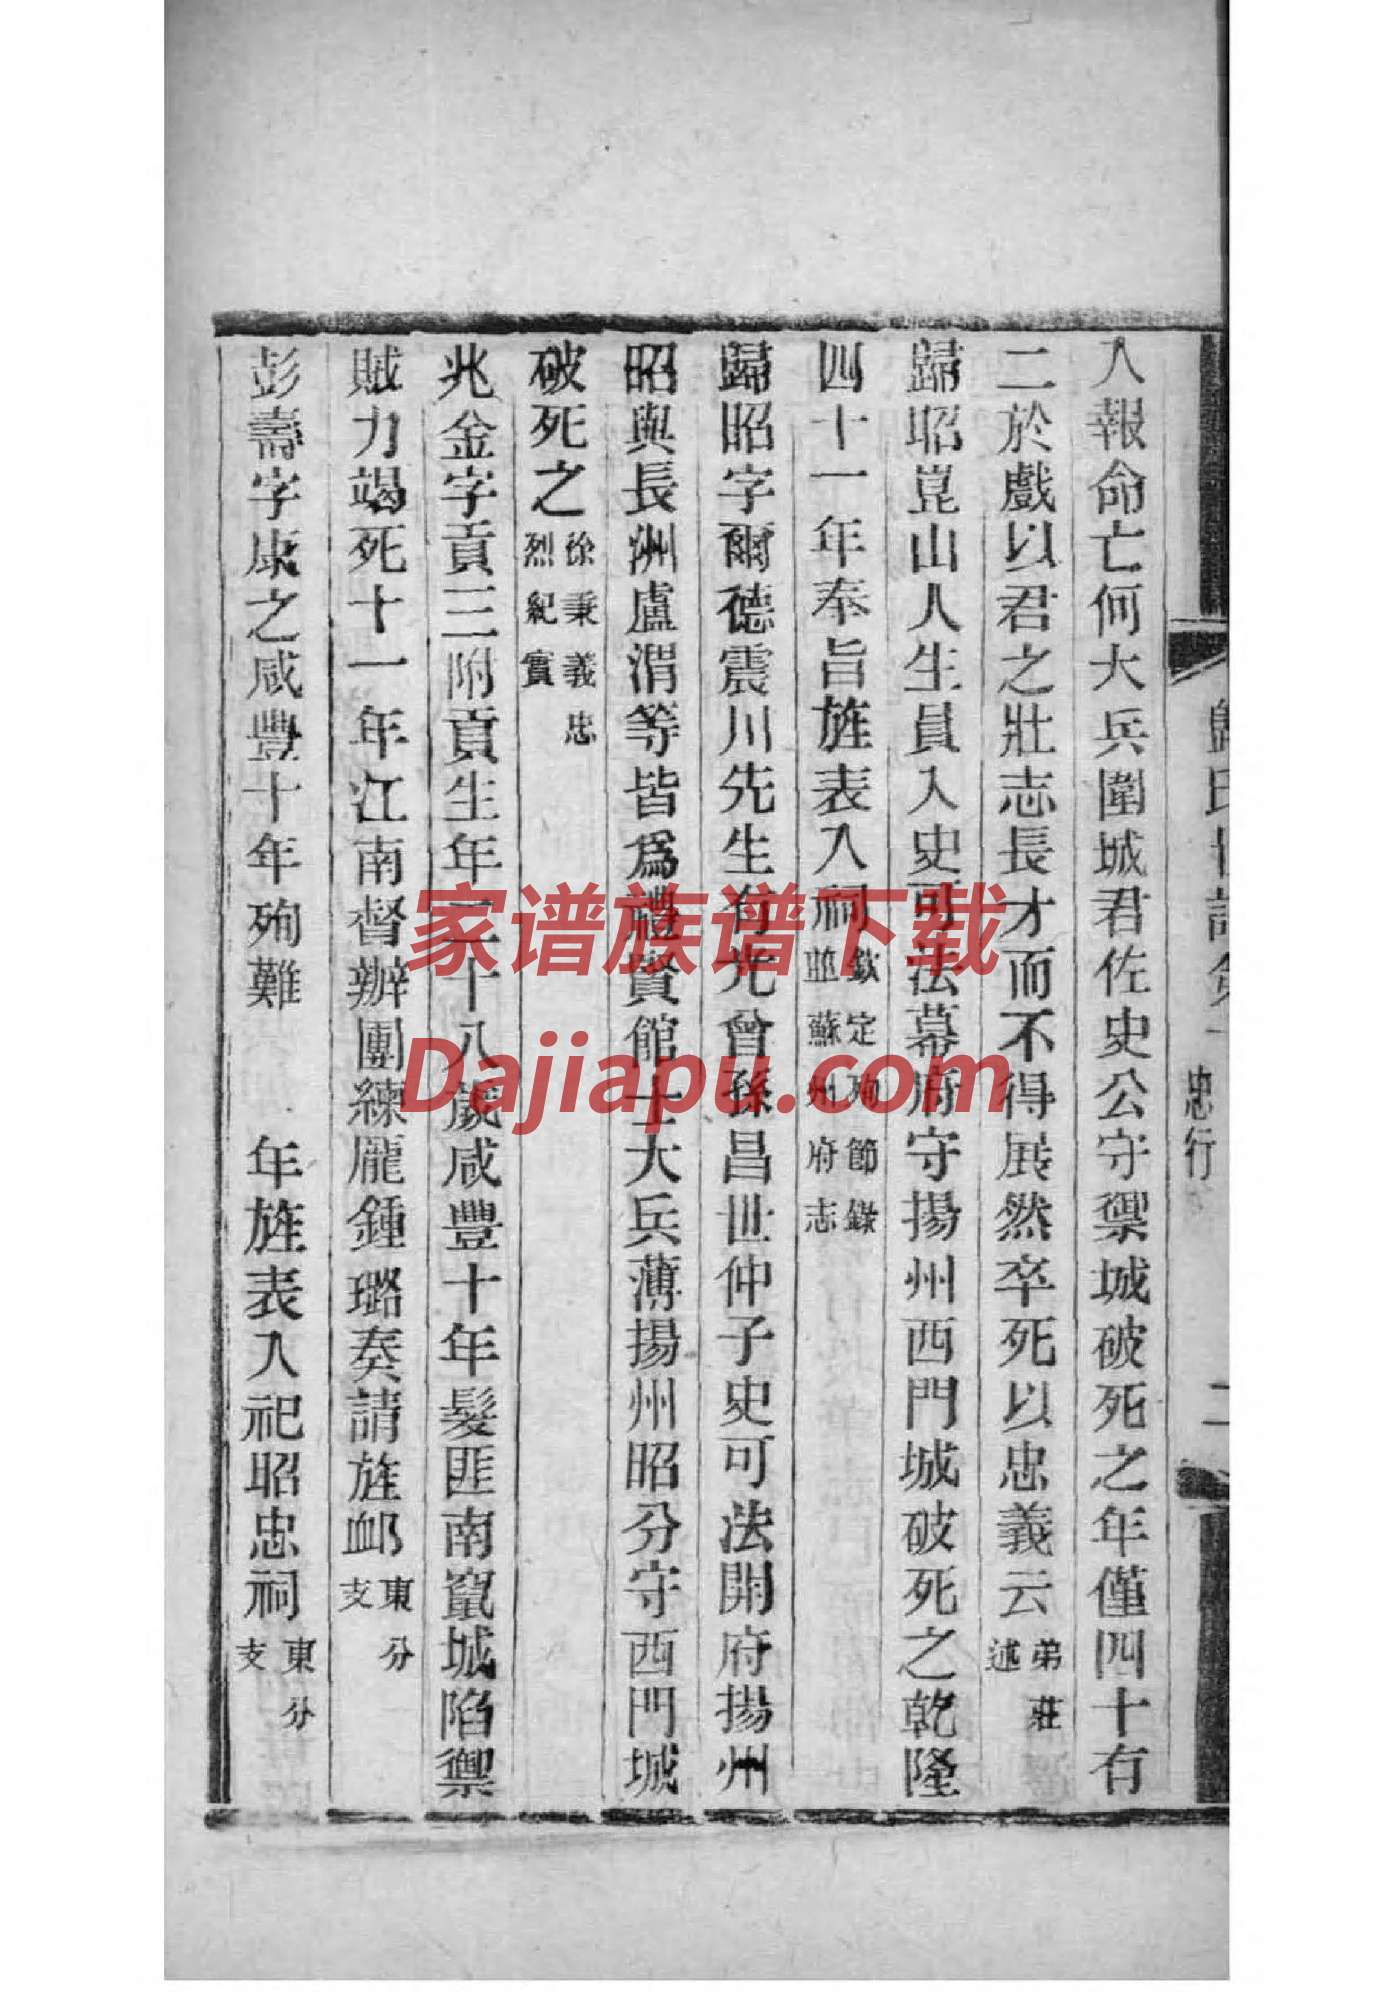 人報命亡何大兵圍城君佐史公守禦城破死之年僅四十有
二於戲以君之壯志長才而不得展然卒死以忠義云弟莊述
歸昭崑山人生員入史可法幕府守揚州西門城破死之乾隆
四十一年奉旨旌表入祠欽定殉節錄並蘇州府志
歸昭字爾德震川先生有光曾孫昌世仲子史可法開府揚州
昭與長洲盧渭等皆爲禮賢館士大兵薄揚州昭分守西門城
破死之徐秉義忠烈紀實
兆金字貢三附貢生年二十八歲咸豐十年髮匪南竄城陷禦
賊力竭死十一年江南督辦團練龐鍾璐奏請旌卹東分支
彭壽字康之咸豐十年殉難 年旌表入祀昭忠祠東分支
歸氏世譜 忠行 二
家谱族谱下载
Dajiapu.com